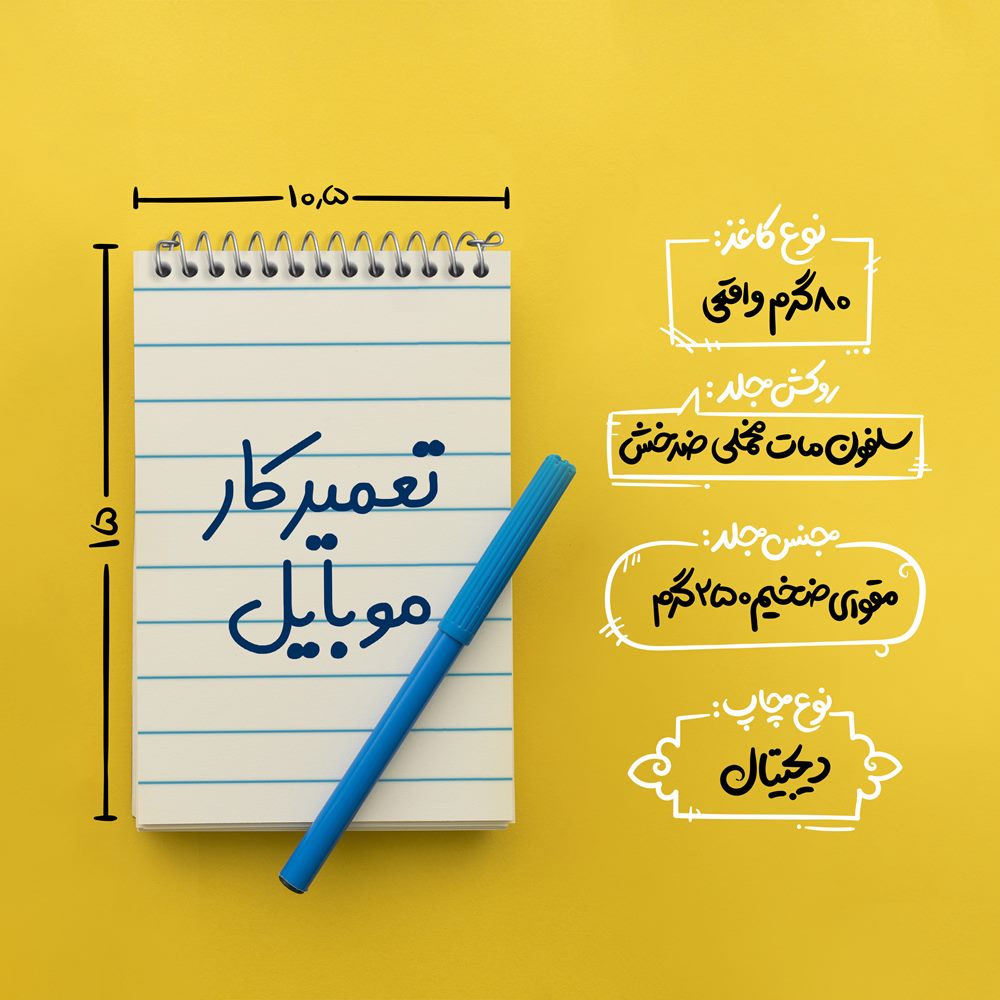 ۱۰٫۵
۱۵
تعمیرکار
موبایل
نوع کاغذ:
۸۰ گرم واقعی
روکش جلد:
سلفون مات مخملی ضدخش
جنس جلد:
مقوای ضخیم ۲۵۰ گرم
نوع چاپ:
دیجیتال